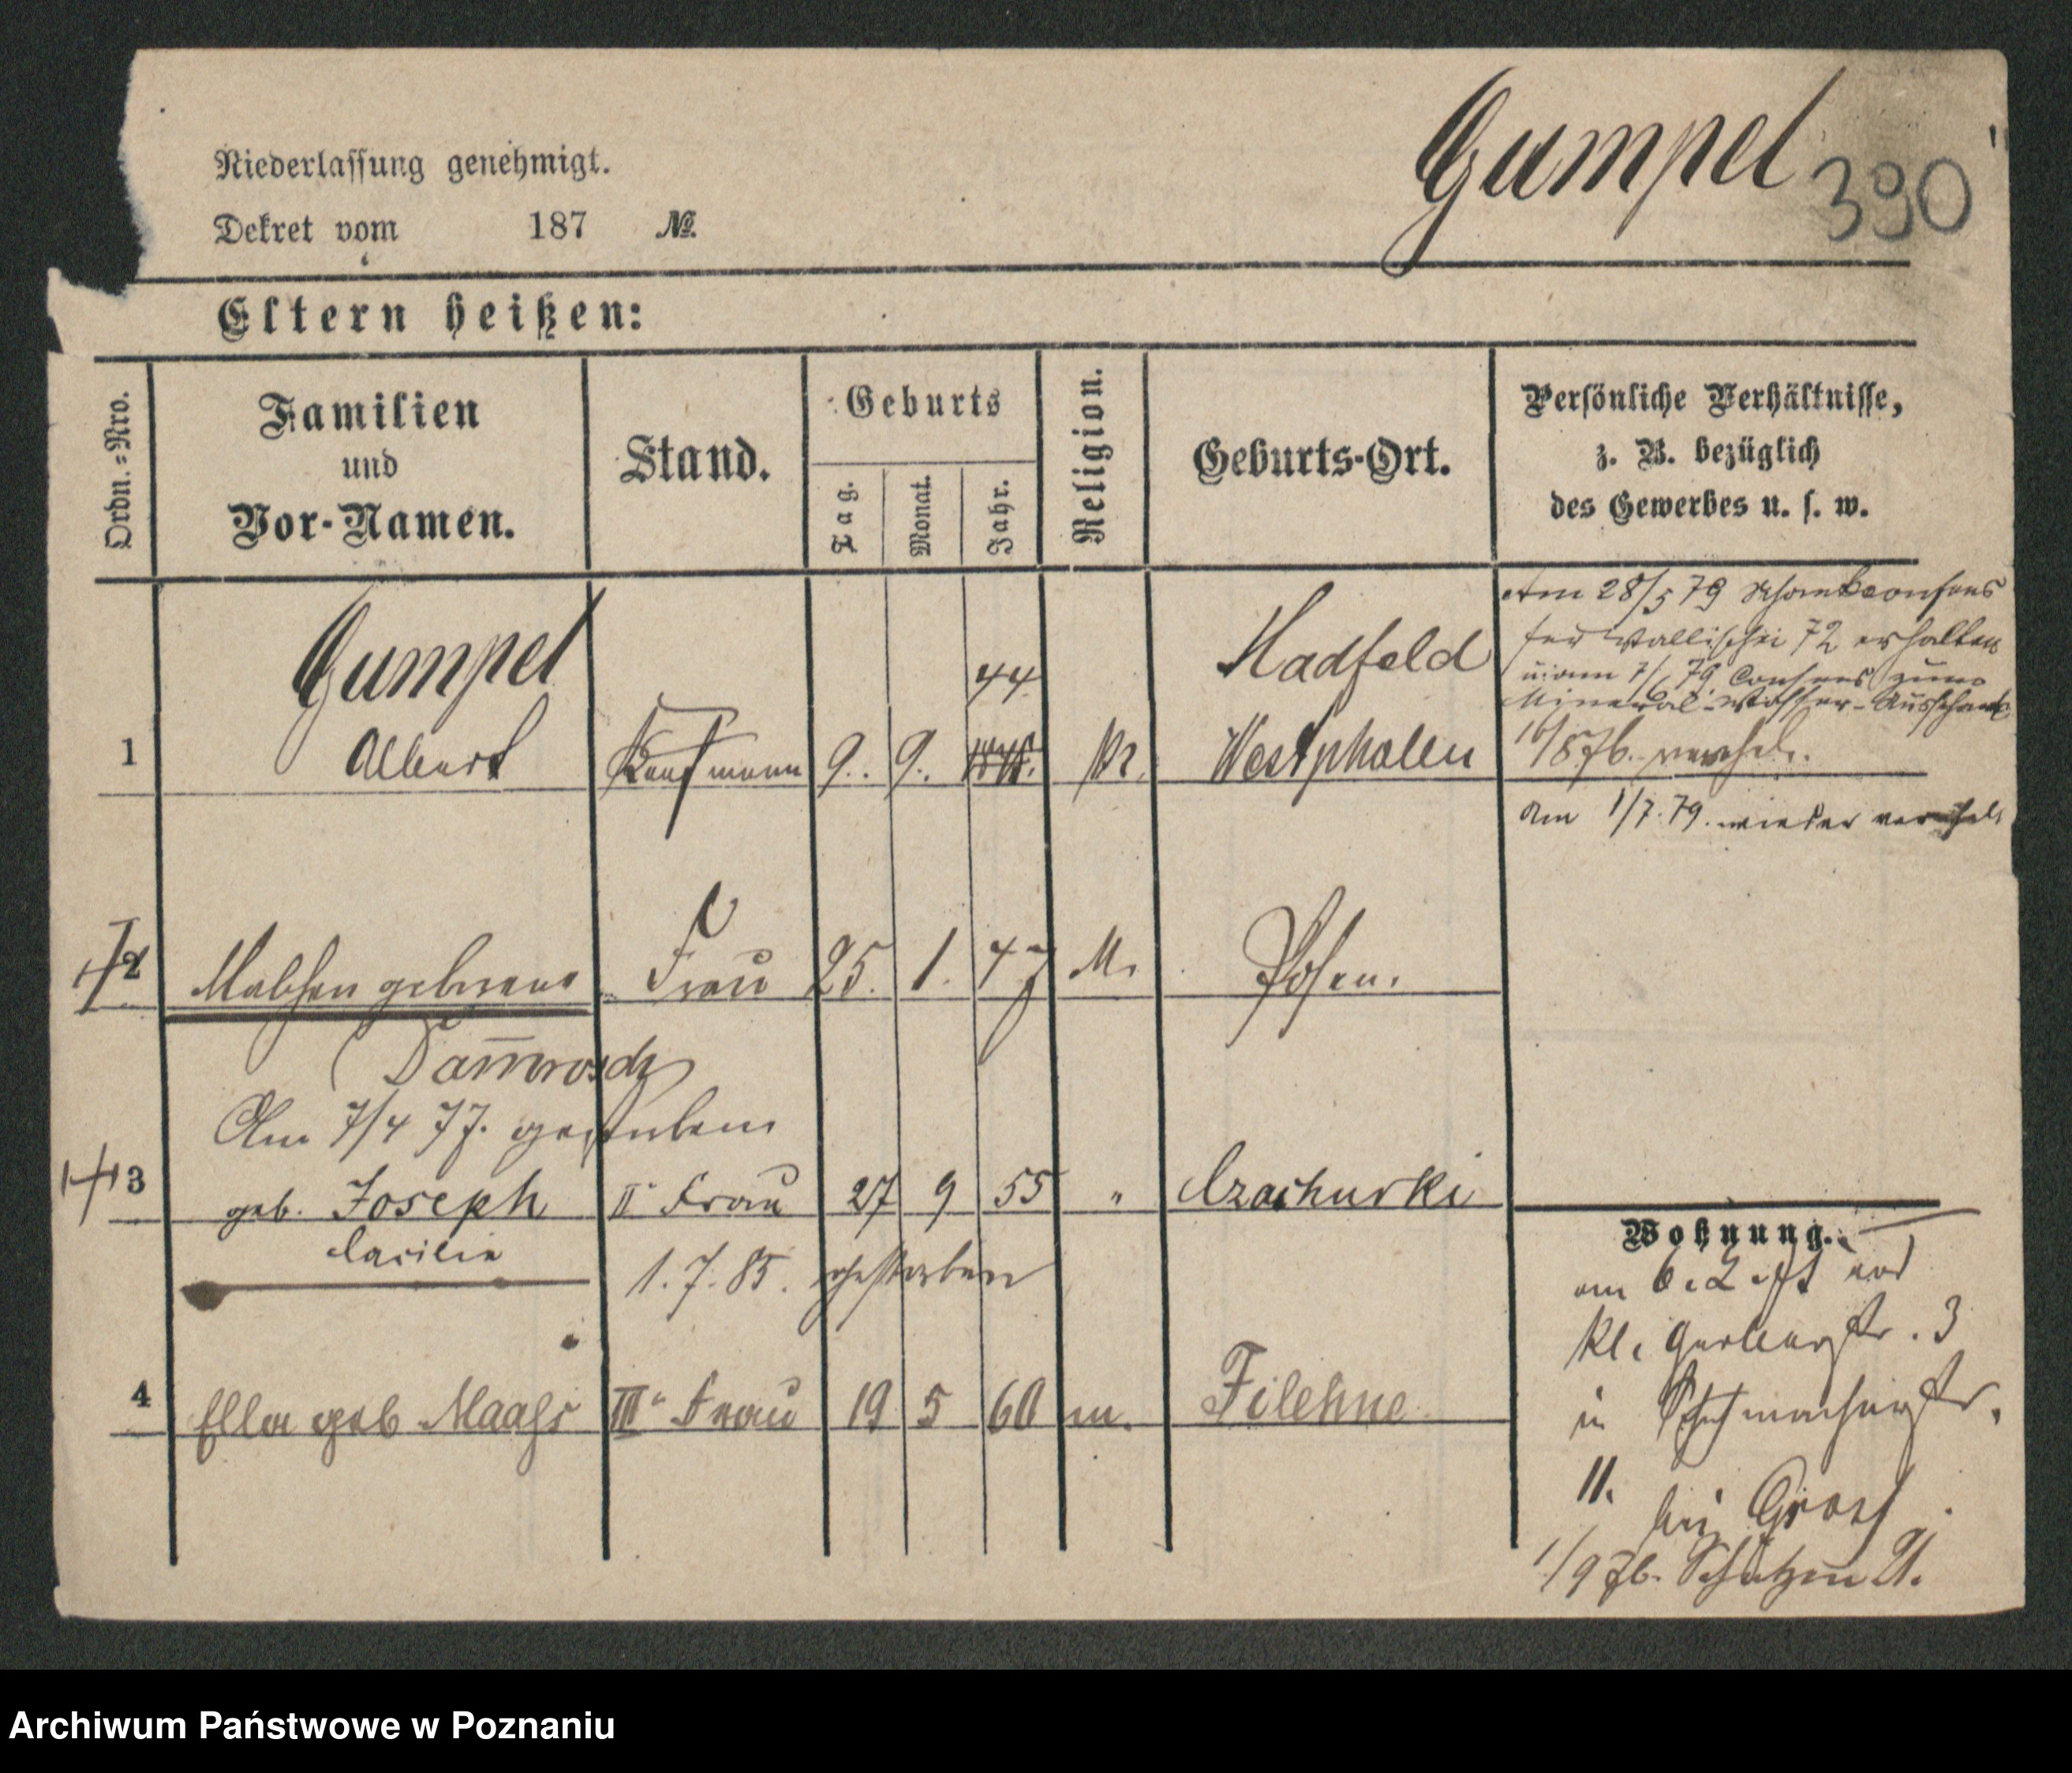 Gumpel 390
Niederlassung genehmigt.
Dekret vom 187 №.
Eltern heißen:
Ordn.=Nro.
Familien
und
Vor-Namen.
Stand.
Geburts
Tag.
Monat.
Jahr.
Religion.
Geburts-Ort.
Persönliche Verhältnisse,
z. B. bezüglich
des Gewerbes u. s. w.
Gumpel
Albert
1 Kaufmann 9. 9. 44
Westphalen
Am 28/5 79 Schankconsens
für Wallischei 72 erhalten
u. am 7/6 79 Consens zum
Mineral-Wasser-Ausschank
Am 1/7. 79. wieder
2 geborene Frau 25. 1. 47 M. Posen.
Damrosch
Am 7/4 77. gestorben
3 geb. Joseph II Frau 27 9 55 "
Cacilie
1. 7. 85. gestorben
4 Ella geb Maaß III Frau 19 5 60 m. Filehne
Wohnung.
am
kl. Gerberstr. 3
in Schuhmacherstr.
11.
bei
1/9 76. Schützen 21.